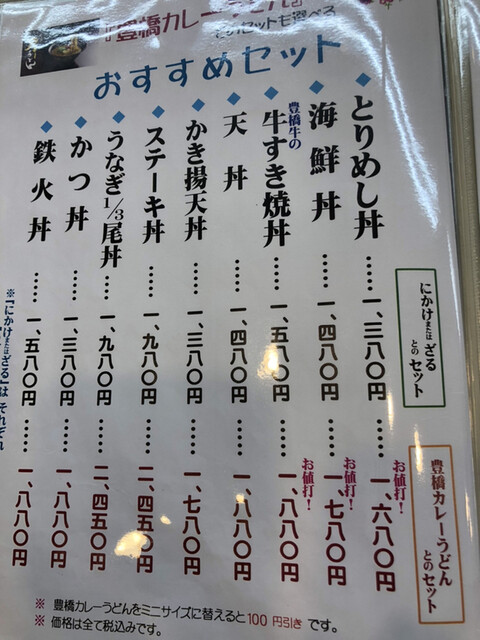 『豊橋カレーうどん』
とのセットも選べる
おすすめセット
にかけまたはざる
とのセット
豊橋カレーうどん
とのセット
◆とりめし丼……一、三八〇円……一、六八〇円
お値打!
◆海鮮丼……一、四八〇円……一、七八〇円
お値打!
豊橋牛の
◆牛すき焼丼……一、五八〇円……一、八八〇円
お値打!
◆天丼……一、四八〇円……一、八八〇円
◆かき揚天丼……一、三八〇円……一、七八〇円
◆ステーキ丼……一、九八〇円……二、四五〇円
◆うなぎ1/3尾丼……一、九八〇円……二、四五〇円
◆かつ丼……一、三八〇円……一、八八〇円
◆鉄火丼……一、五八〇円……一、八八〇円
※『にかけまたはざる』は それぞれ
※ 豊橋カレーうどんをミニサイズに替えると100円引き です。
※ 価格は全て税込みです。